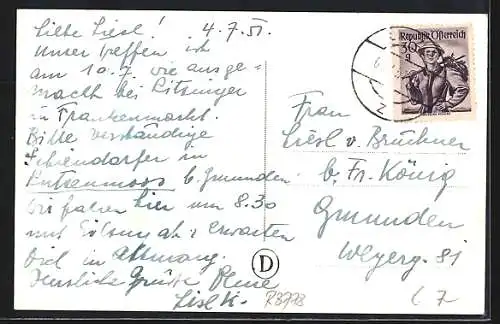 Liebe Liesl! 4.7.51.
Unser treffen ist
am 10.7. wie ausge-
macht bei Litzinger
in Frankenmarkt.
Bitte verständige
in
b. Gmunden
wir fahren hier um 8.30
mit ab u. erwarten
Dich in Attnang.
Herzliche Grüße Deine
Lisl K.
R3778
D
Republik Österreich
30
g
Frau
Liesl v. Brückner
b. Fr. König
Gmunden
Weyerg. 81
L 7